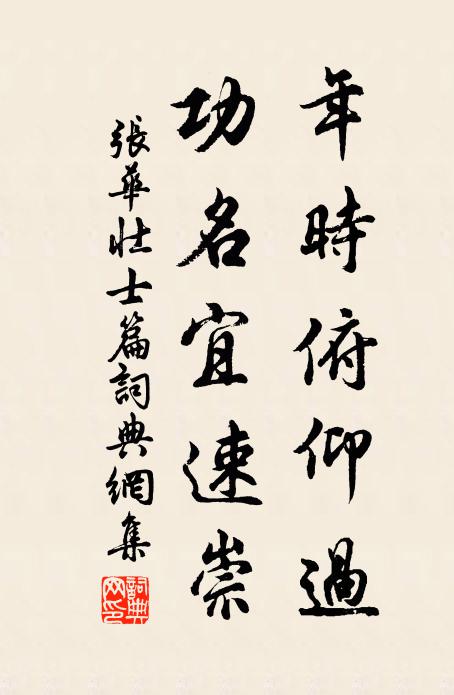 年時俯仰過
功名宜速崇
張華壯士篇詞典網集
詞典網印